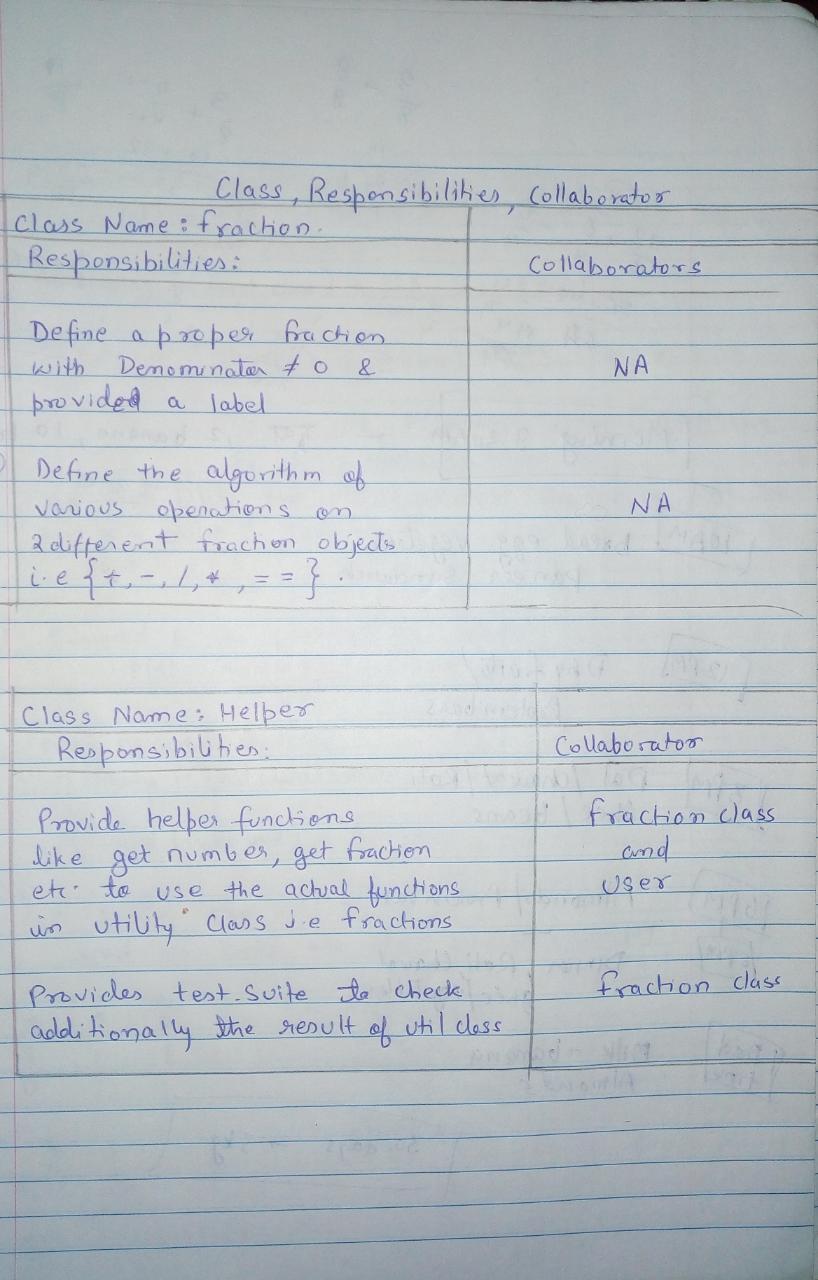 Class, Responsibilities, Collaborator
Class Name: fraction.
Responsibilities:
Collaborators
Define a proper fraction
with Denominator ≠ 0 &
provided a label
NA
Define the algorithm of
various operations on
2 different fraction objects
i.e {+, -, /, *, = =}.
NA
Class Name: Helper
Responsibilities:
Collaborator
Provide helper functions
like get number, get fraction
etc. to use the actual functions
in utility class i.e fractions
fraction class
and
User
Provides test suite to check
additionally the result of util class
fraction class